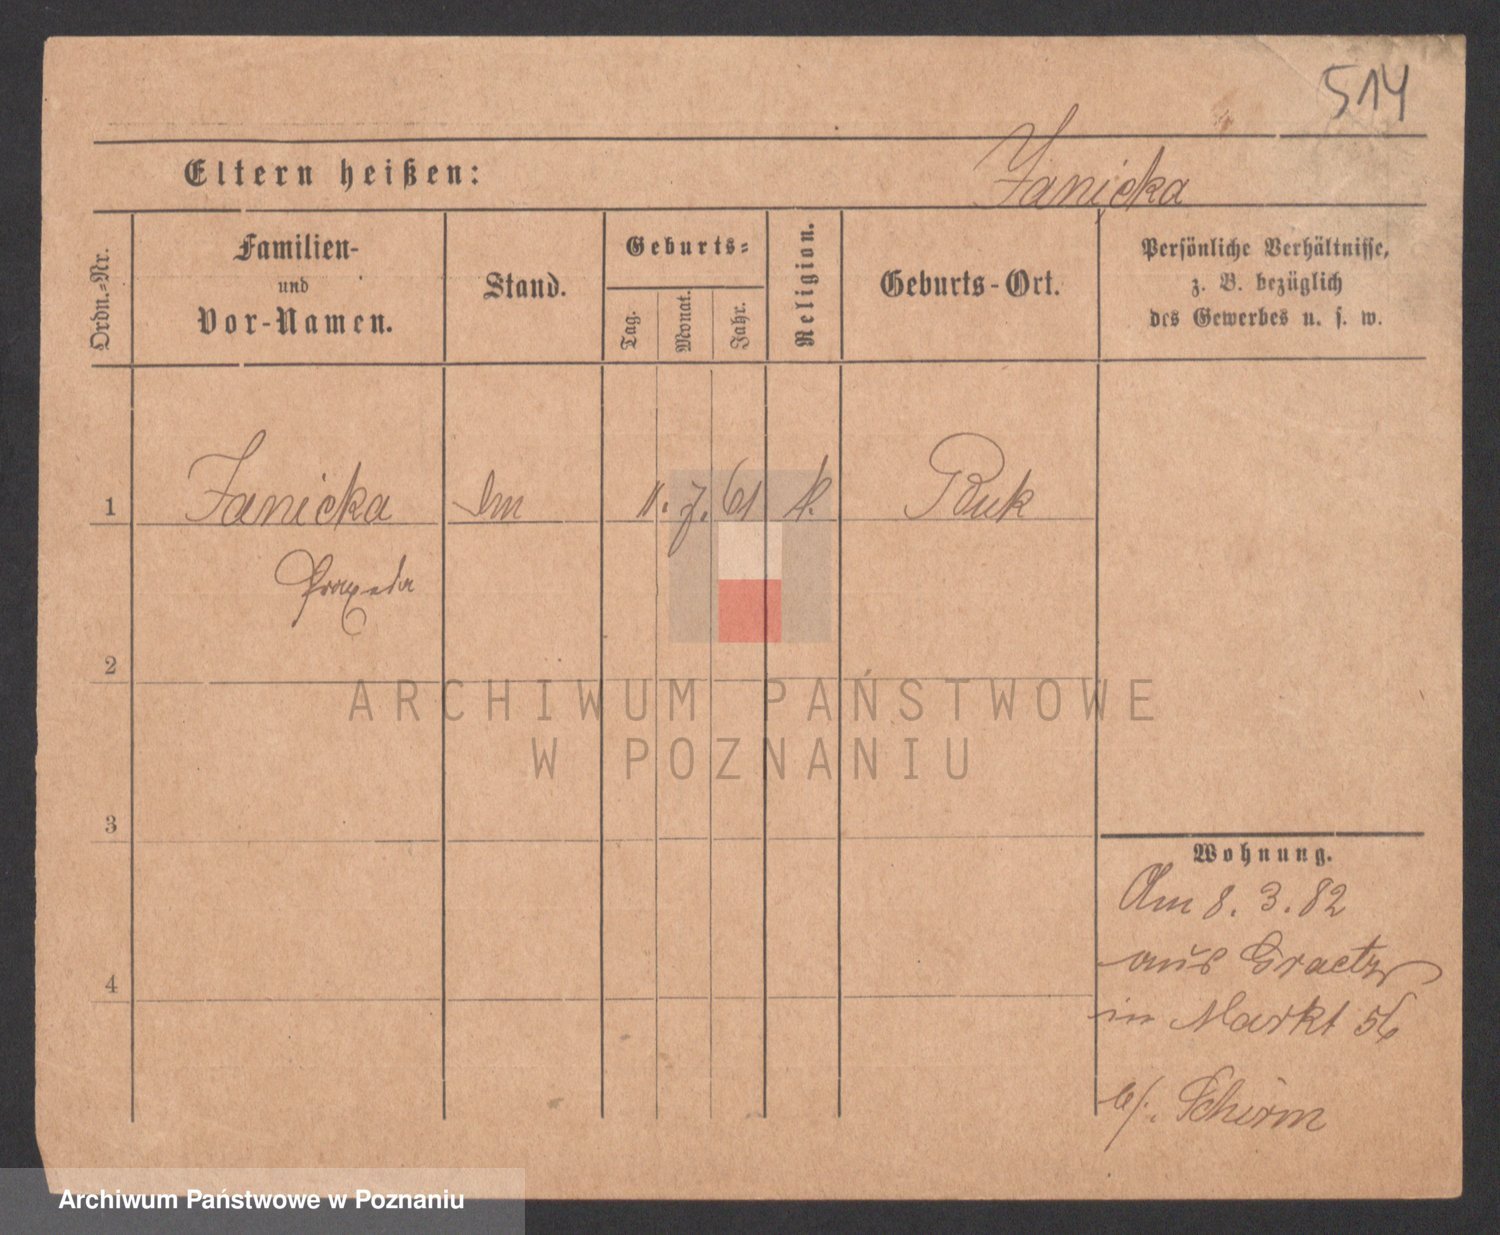 514
Eltern heißen: Janicka
Ordn.-Nr.
Familien-
und
Vor-Namen.
Stand.
Geburts-
Tag.
Monat.
Jahr.
Religion.
Geburts-Ort.
Persönliche Verhältnisse,
z. B. bezüglich
des Gewerbes u. s. w.
1 Janicka 11. 7. 61 k. Buk
Praxeda
2
3
4
Wohnung.
Am 8. 3. 82
aus Graetz
in Markt 56
b/. Schirm
ARCHIWUM PAŃSTWOWE
W POZNANIU
Archiwum Państwowe w Poznaniu